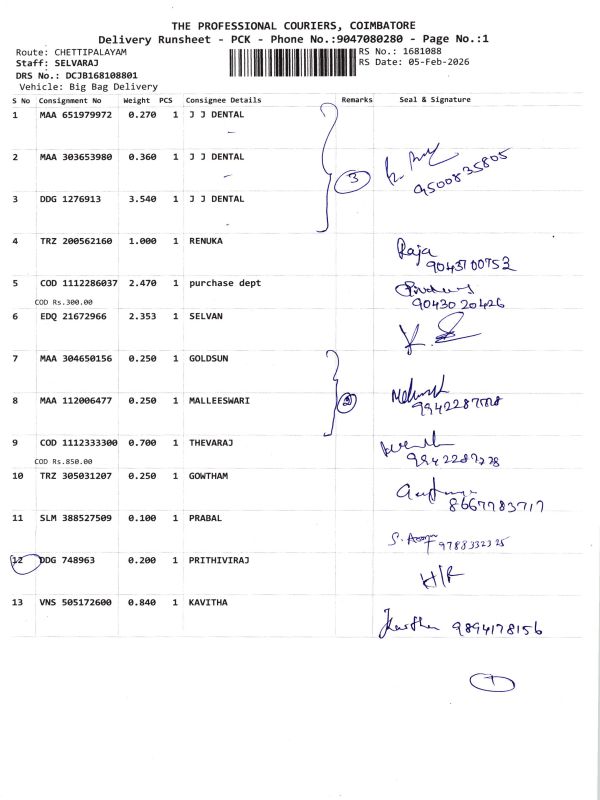 THE PROFESSIONAL COURIERS, COIMBATORE
Delivery Runsheet - PCK - Phone No.:9047080280 - Page No.:1
Route: CHETTIPALAYAM RS No.: 1681088
Staff: SELVARAJ RS Date: 05-Feb-2026
DRS No.: DCJB168108801
Vehicle: Big Bag Delivery
S No Consignment No Weight PCS Consignee Details Remarks Seal & Signature
1 MAA 651979972 0.270 1 J J DENTAL
2 MAA 303653980 0.360 1 J J DENTAL 3 9500835805
3 DDG 1276913 3.540 1 J J DENTAL
4 TRZ 200562160 1.000 1 RENUKA Raja
9043700753
5 COD 1112286037 2.470 1 purchase dept
COD Rs.300.00 9043020426
6 EDQ 21672966 2.353 1 SELVAN
7 MAA 304650156 0.250 1 GOLDSUN
8 MAA 112006477 0.250 1 MALLEESWARI 2
9 COD 1112333300 0.700 1 THEVARAJ
COD Rs.850.00
10 TRZ 305031207 0.250 1 GOWTHAM
8667783717
11 SLM 388527509 0.100 1 PRABAL
9788332325
12 DDG 748963 0.200 1 PRITHIVIRAJ H/R
13 VNS 505172600 0.840 1 KAVITHA 9894178156
1